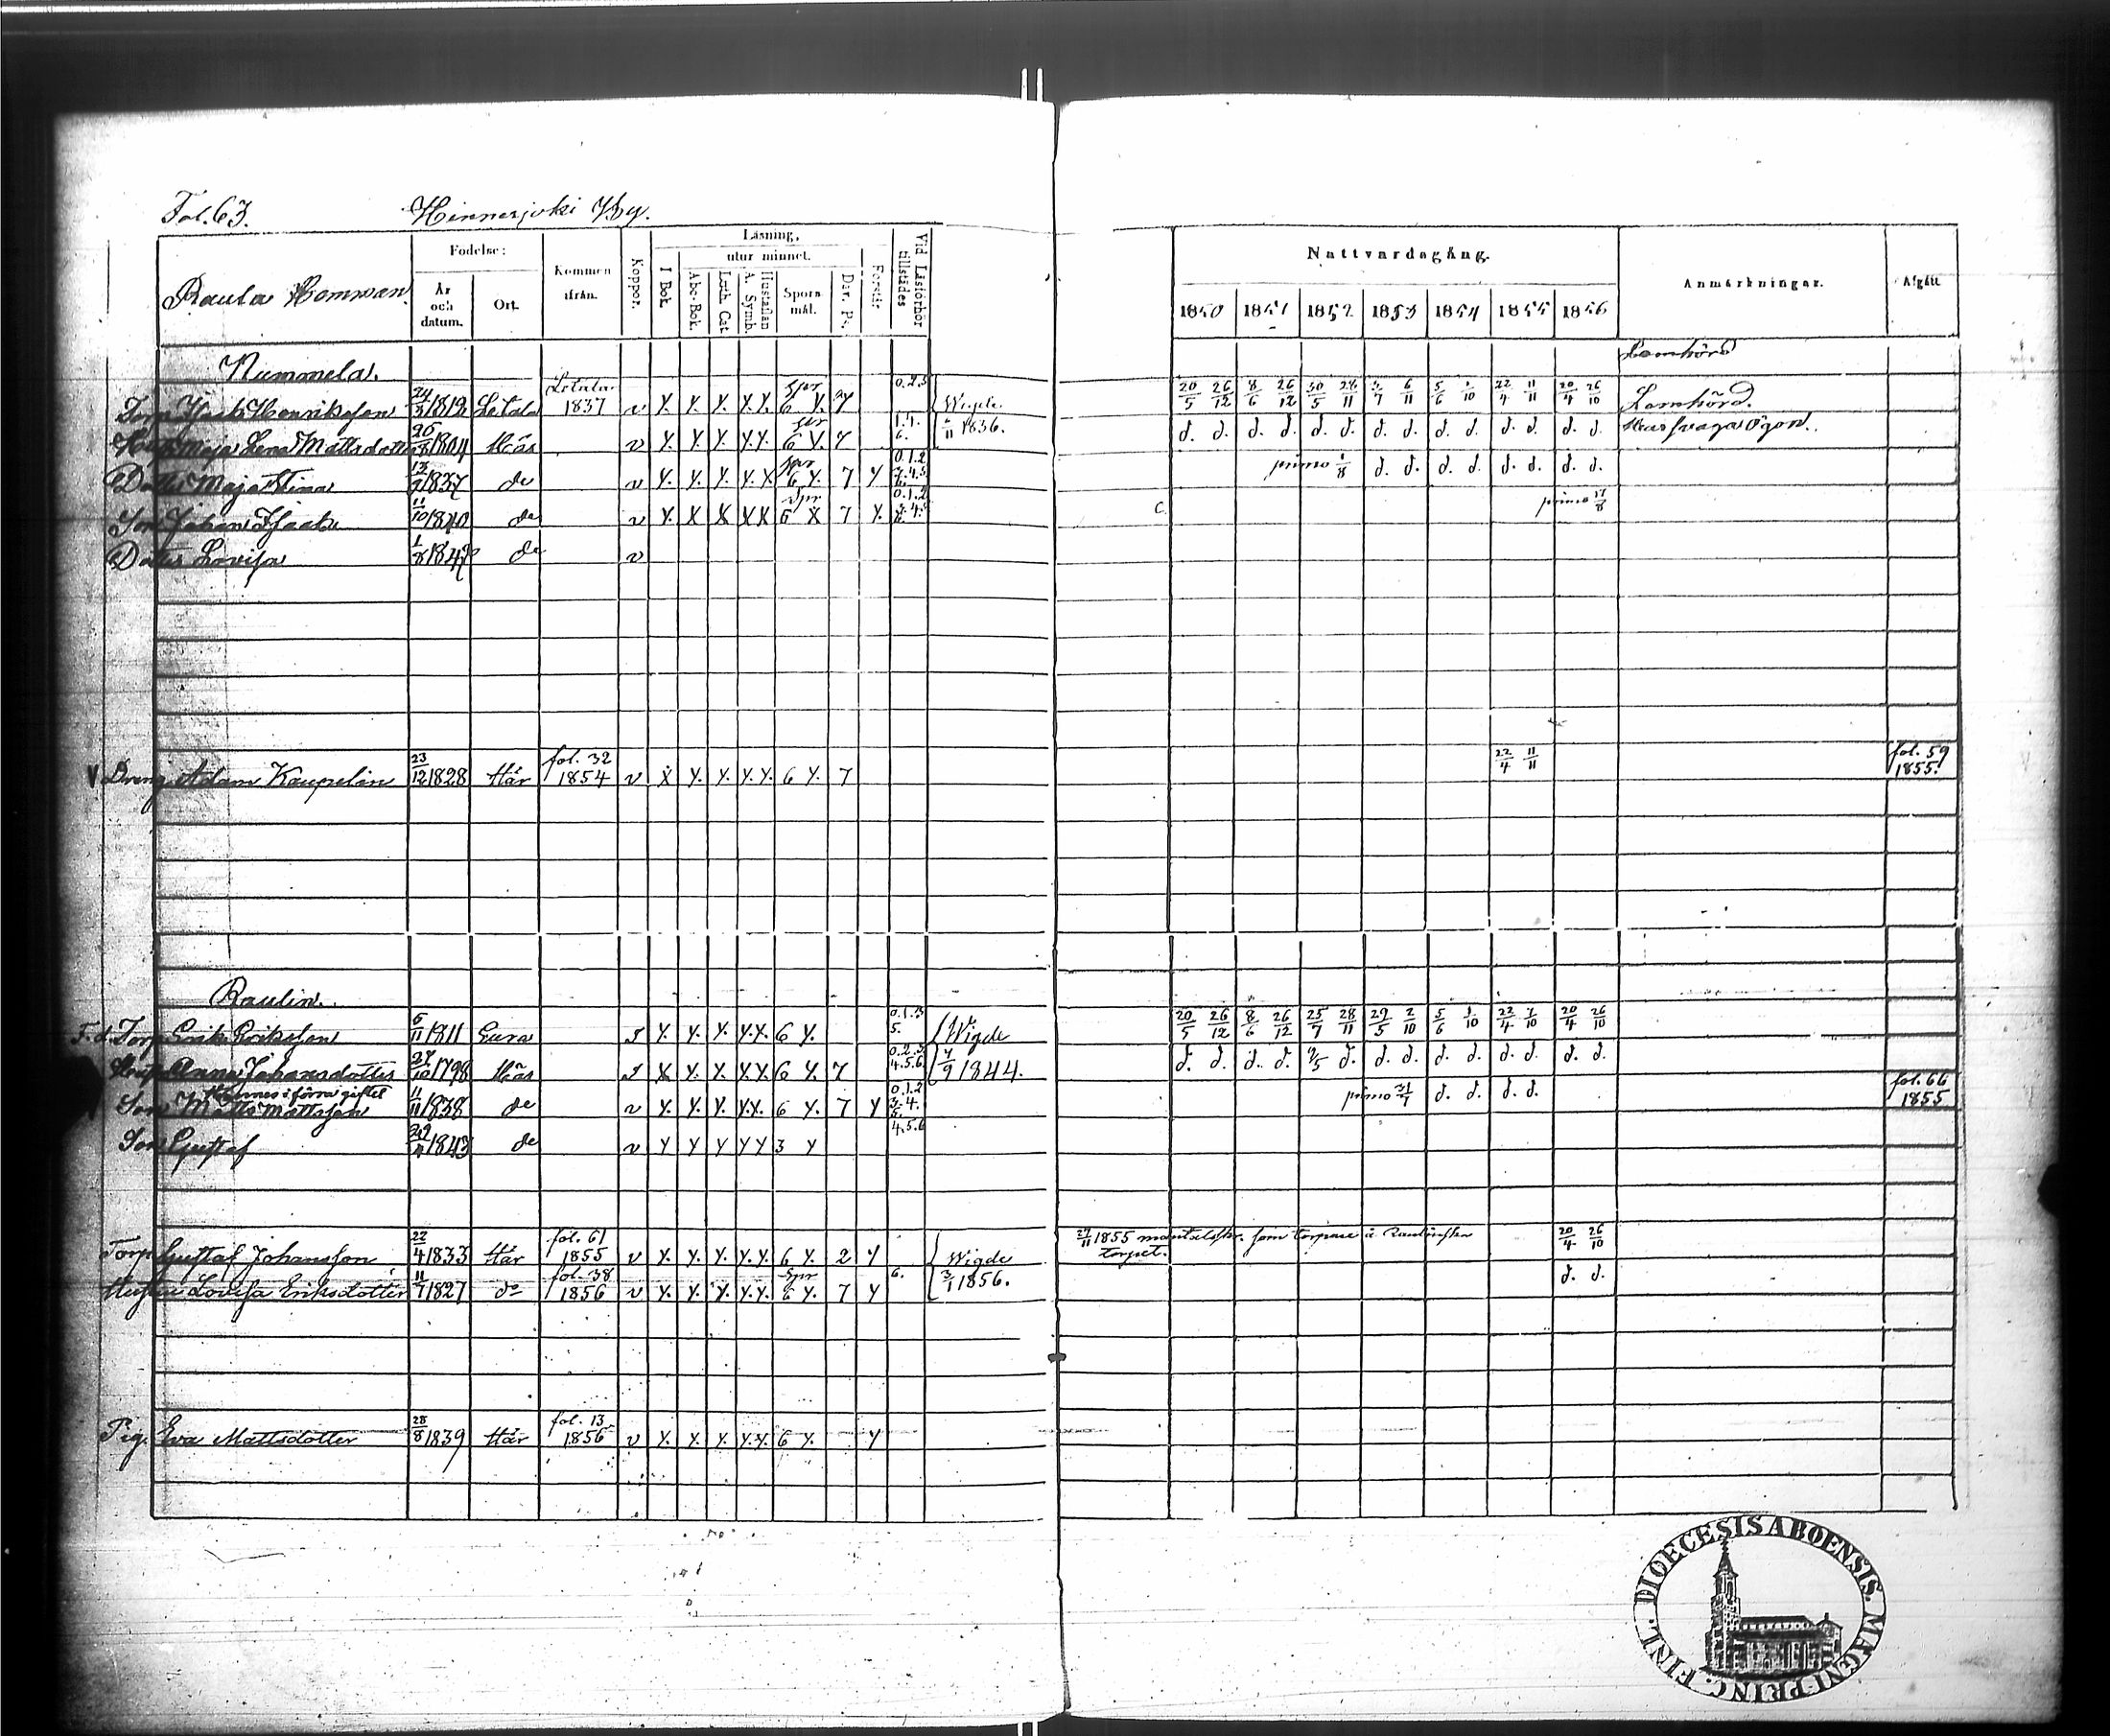 Fol. 63. Hinnerjoki By.
Raula Hemman.
Födelse: År och datum. Ort.
Kommen ifrån.
Koppor.
Läsning, utur minnet.
I Bok. Abc-Bok. Luth. Cat. Hustaflan A. Symb. Spörsmål. Dav. Ps. Förstår.
Vid Läsförhör tillstädes
Nattvardsgång.
1850 1851 1852 1853 1854 1855 1856
Anmärkningar.
Afgått.
Nummela. Lomhörd
Torp. Isaak Henriksson 24/3 1812 Letala Letala 1837 v Y. Y. Y. Y. Y. spr 6 Y. 7 0.2.3 Wigde 20/5 26/12 8/6 26/12 30/5 28/11 3/7 6/11 5/6 1/10 22/4 11/11 20/4 26/10 Lomhörd.
Hust. Maja Lena Mattsdotter 26/8 1804 Här v Y. Y. Y. Y. Y. spr 6 Y. 7 6. /11 1836. d. d. d. d. d. d. d. d. d. d. d. d. d. d. Har svaga ögon.
Dotter Maja Stina 13/ 1837 do v Y. Y. Y. Y. Y. spr 6 Y. 7 Y 0.1.2 primo 1/8 d. d. d. d. d. d. d. d.
Son Johan Isaak 11/10 1840 do v Y. X X X X spr 6 X 7 Y. 0.1.2 primo 17/8
Dotter Lovisa 1/8 1847 do v
V Dreng Adam Kaupelin 23/12 1828 Här fol. 32 1854 v X Y. Y. Y. Y. 6 Y. 7 22/4 11/11 fol. 59 1855.
Raulin.
F.d. Torp. Erik Eriksson 6/11 1811 Eura Y. Y. Y. Y. Y. 6 Y. 0.1.3 5. Wigde 20/5 26/12 8/6 26/12 25/7 28/11 29/5 2/10 5/6 1/10 22/4 7/10 20/4 26/10
Hust. Anna Johansdotter 27/10 1798 Här Y. Y. Y. Y. 6 Y. 7 0.2.3 4.5.6 4/9 1844. d. d. d. d. 9/5 d. d. d. d. d. d. d. d. d.
Hennes i förra giftet
Son Matts Mattsson 11/11 1838 do v Y. Y. Y. Y. Y. 6 Y. 7 Y 0.1.2 3.4. primo 31/7 d. d. d. d. fol. 66 1855
Son Gustaf 1843 do v Y Y Y Y Y 3 Y 4.5.6
Torp. Gustaf Johansson 22/4 1833 Här fol. 61 1855 v Y. Y. Y. Y. Y. 6 Y. 2 Y Wigde 27/11 1855 som torpare å 20/4 26/10
torpet.
Hustru Lovisa Eriksdotter 11/7 1827 do fol. 38 1856 v Y. Y. Y. Y. Y. spr 6 Y. 7 Y 6. 3/1 1856. d. d.
Pig. Eva Mattsdotter 28/8 1839 Här fol. 13 1856 v Y. Y. Y. Y. Y. 6 Y. Y
DIOECESIS ABOENSIS. MAGNI PRINC. FINL.